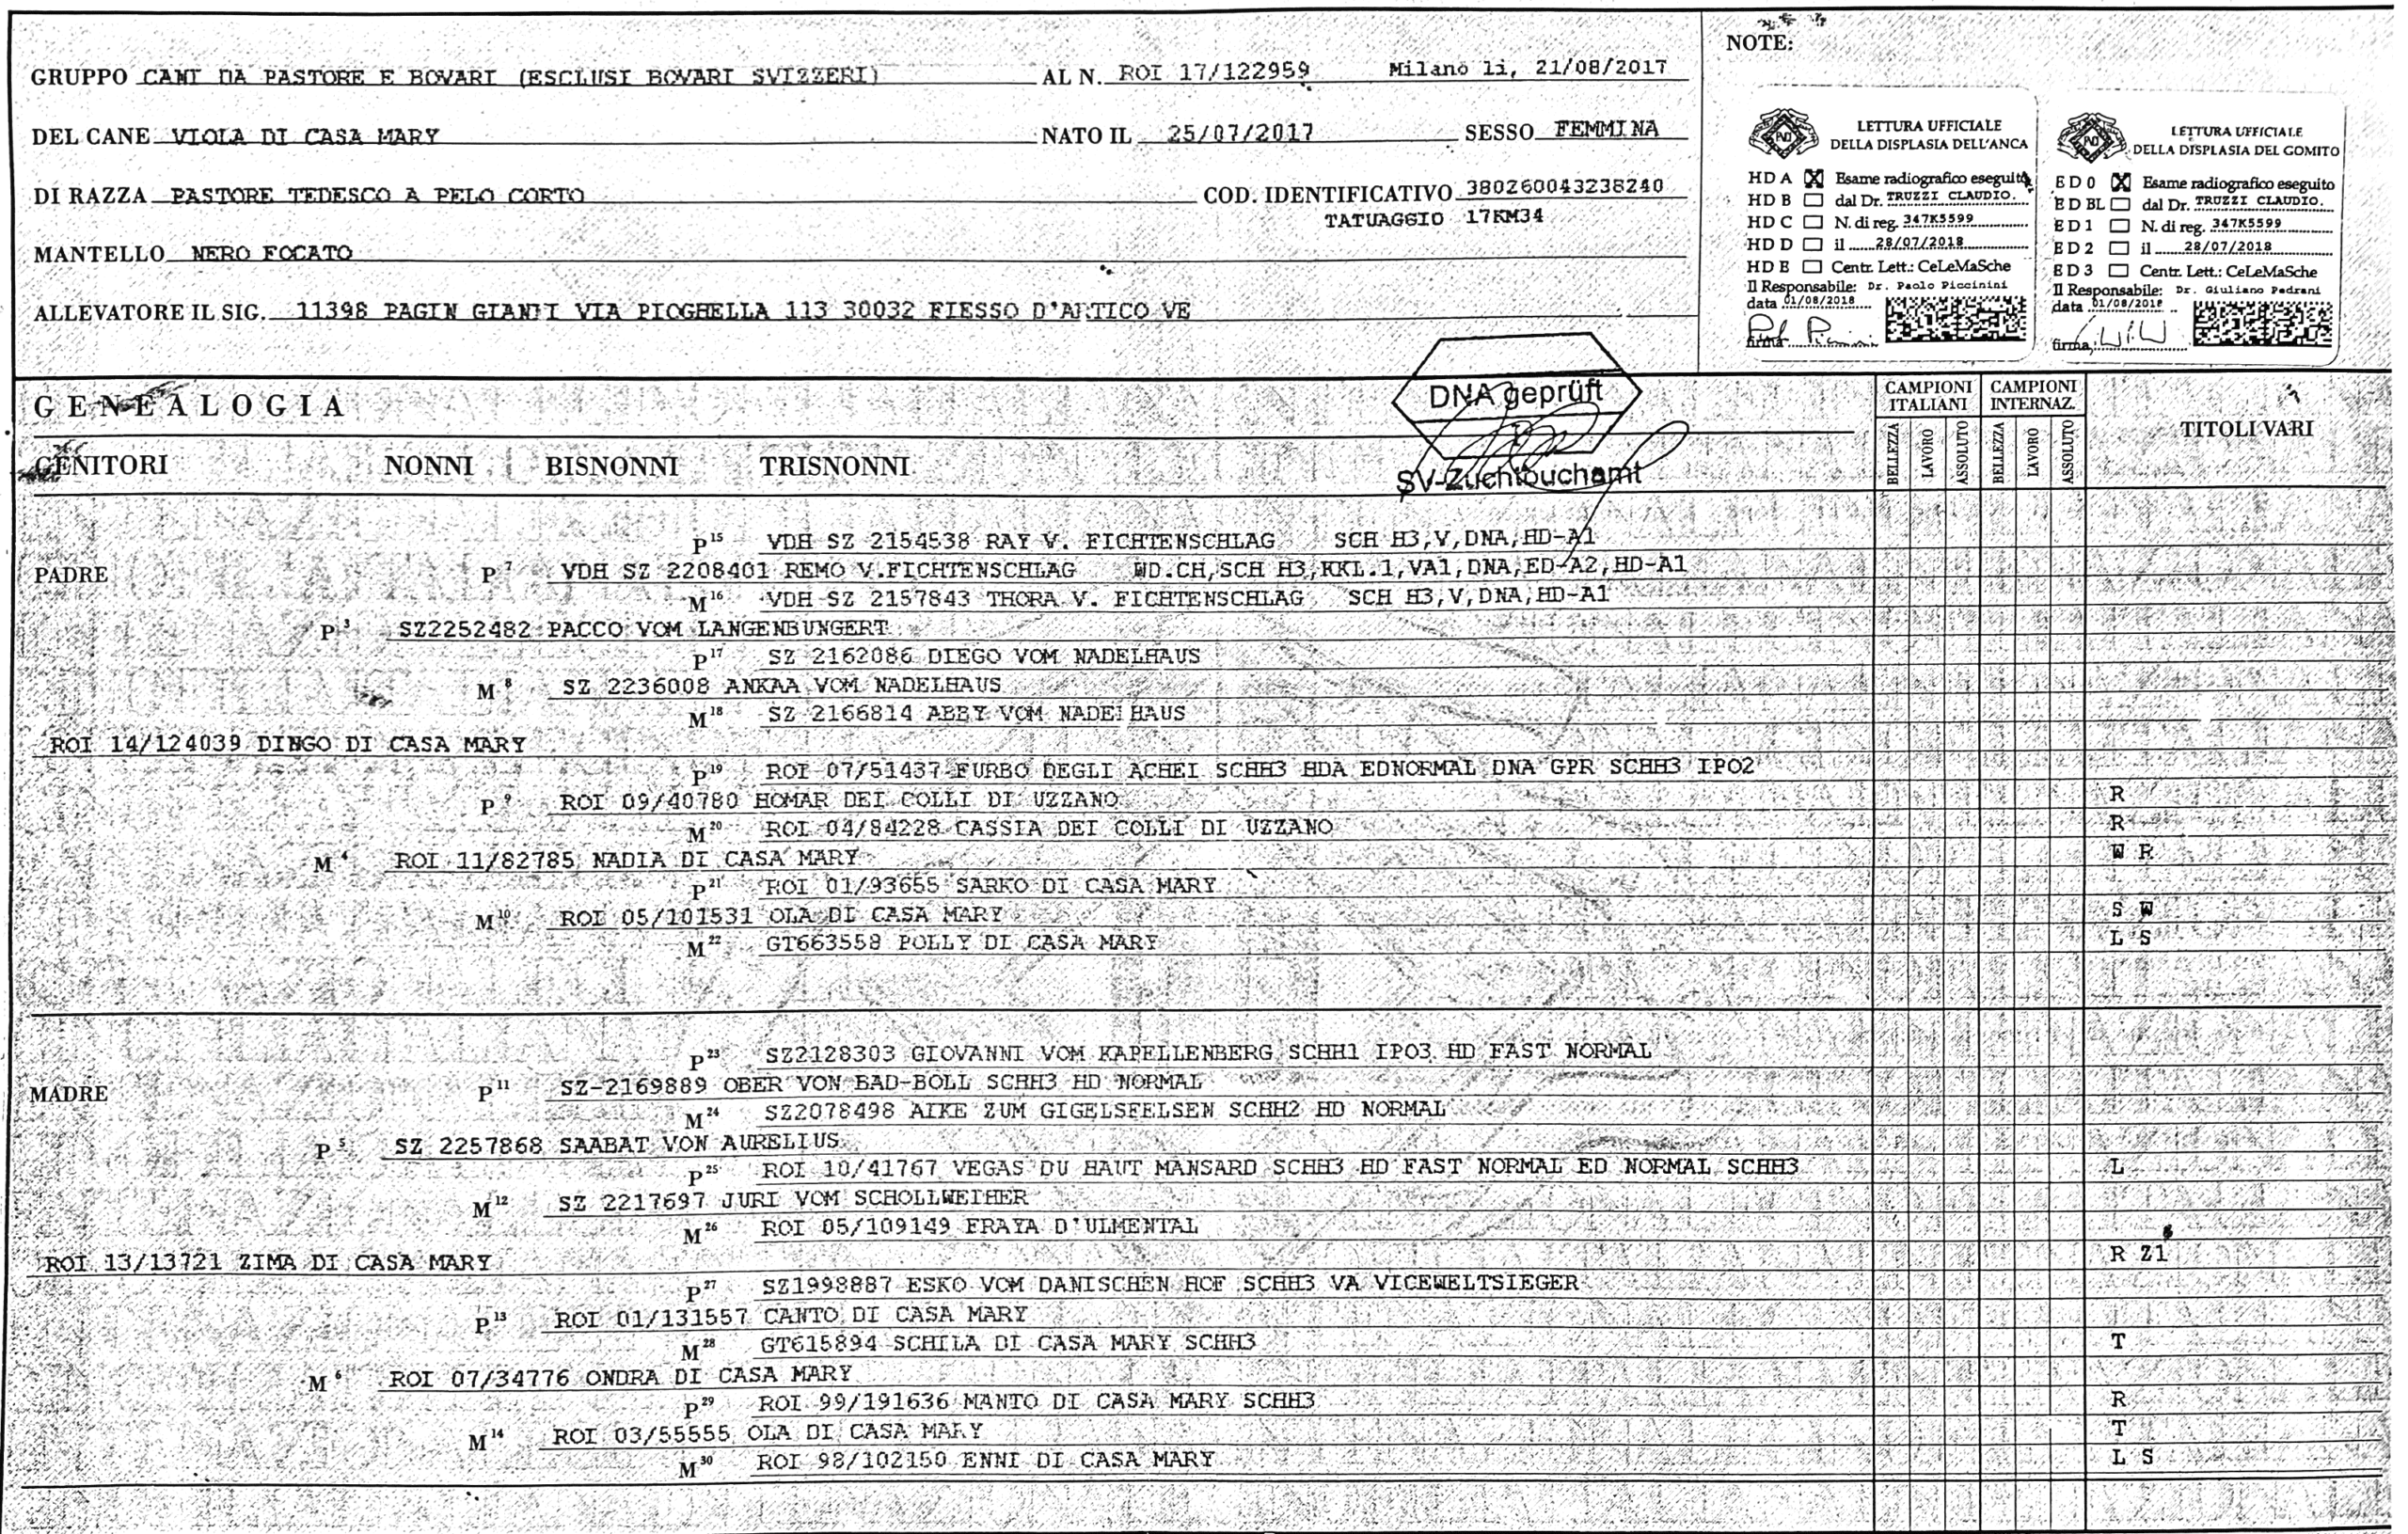 NOTE:
GRUPPO CANI DA PASTORE E BOVARI (ESCLUSI BOVARI SVIZZERI) AL N. ROI 17/122959 Milano li, 21/08/2017
DEL CANE VIOLA DI CASA MARY NATO IL 25/07/2017 SESSO FEMMINA
DI RAZZA PASTORE TEDESCO A PELO CORTO COD. IDENTIFICATIVO 380260043238240
TATUAGGIO 17KM34
MANTELLO NERO FOCATO
ALLEVATORE IL SIG. 11398 PAGIN GIANNI VIA PIOGHELLA 113 30032 FIESSO D'ARTICO VE
LETTURA UFFICIALE
DELLA DISPLASIA DELL'ANCA
HD A Esame radiografico eseguito
HD B dal Dr. TRUZZI CLAUDIO.
HD C N. di reg. 347K5599
HD D il 28/07/2018
HD E Centr. Lett.: CeLeMaSche
Il Responsabile: Dr. Paolo Piccinini
data 01/08/2018
firma
LETTURA UFFICIALE
DELLA DISPLASIA DEL GOMITO
ED 0 Esame radiografico eseguito
ED BL dal Dr. TRUZZI CLAUDIO.
ED 1 N. di reg. 347K5599
ED 2 il 28/07/2018
ED 3 Centr. Lett.: CeLeMaSche
Il Responsabile: Dr. Giuliano Pedrani
data 01/08/2018
firma
GENEALOGIA
DNA geprüft
SV-Zuchtbuchamt
CAMPIONI ITALIANI CAMPIONI INTERNAZ. TITOLI VARI
BELLEZZA LAVORO ASSOLUTO BELLEZZA LAVORO ASSOLUTO
GENITORI NONNI BISNONNI TRISNONNI
P15 VDH SZ 2154538 RAY V. FICHTENSCHLAG SCH H3,V,DNA,HD-A1
PADRE P7 VDH SZ 2208401 REMO V.FICHTENSCHLAG WD.CH,SCH H3,KKL.1,VA1,DNA,ED-A2,HD-A1
M16 VDH SZ 2157843 THORA V. FICHTENSCHLAG SCH H3,V,DNA,HD-A1
P3 SZ2252482 PACCO VOM LANGENBUNGERT
P17 SZ 2162086 DIEGO VOM NADELHAUS
M8 SZ 2236008 ANKAA VOM NADELHAUS
M18 SZ 2166814 ABBY VOM NADELHAUS
ROI 14/124039 DINGO DI CASA MARY
P19 ROI 07/51437 FURBO DEGLI ACHEI SCHH3 HDA EDNORMAL DNA GPR SCHH3 IPO2
P9 ROI 09/40780 HOMAR DEI COLLI DI UZZANO R
M20 ROI 04/84228 CASSIA DEI COLLI DI UZZANO R
M4 ROI 11/82785 NADIA DI CASA MARY W R
P21 ROI 01/93655 SARKO DI CASA MARY
M10 ROI 05/101531 OLA DI CASA MARY S W
M22 GT663558 POLLY DI CASA MARY L S
P23 SZ2128303 GIOVANNI VOM KAPELLENBERG SCHH1 IPO3 HD FAST NORMAL
MADRE P11 SZ-2169889 OBER VON BAD-BOLL SCHH3 HD NORMAL
M24 SZ2078498 AIKE ZUM GIGELSFELSEN SCHH2 HD NORMAL
P5 SZ 2257868 SAABAT VON AURELIUS
P25 ROI 10/41767 VEGAS DU HAUT MANSARD SCHH3 HD FAST NORMAL ED NORMAL SCHH3 L
M12 SZ 2217697 JURI VOM SCHOLLWEIHER
M26 ROI 05/109149 FRAYA D'ULMENTAL
ROI 13/13721 ZIMA DI CASA MARY R Z1
P27 SZ1998887 ESKO VOM DANISCHEN HOF SCHH3 VA VICEWELTSIEGER
P13 ROI 01/131557 CANTO DI CASA MARY
M28 GT615894 SCHILA DI CASA MARY SCHH3 T
M6 ROI 07/34776 ONDRA DI CASA MARY
P29 ROI 99/191636 MANTO DI CASA MARY SCHH3 R
M14 ROI 03/55555 OLA DI CASA MARY T
M30 ROI 98/102150 ENNI DI CASA MARY L S